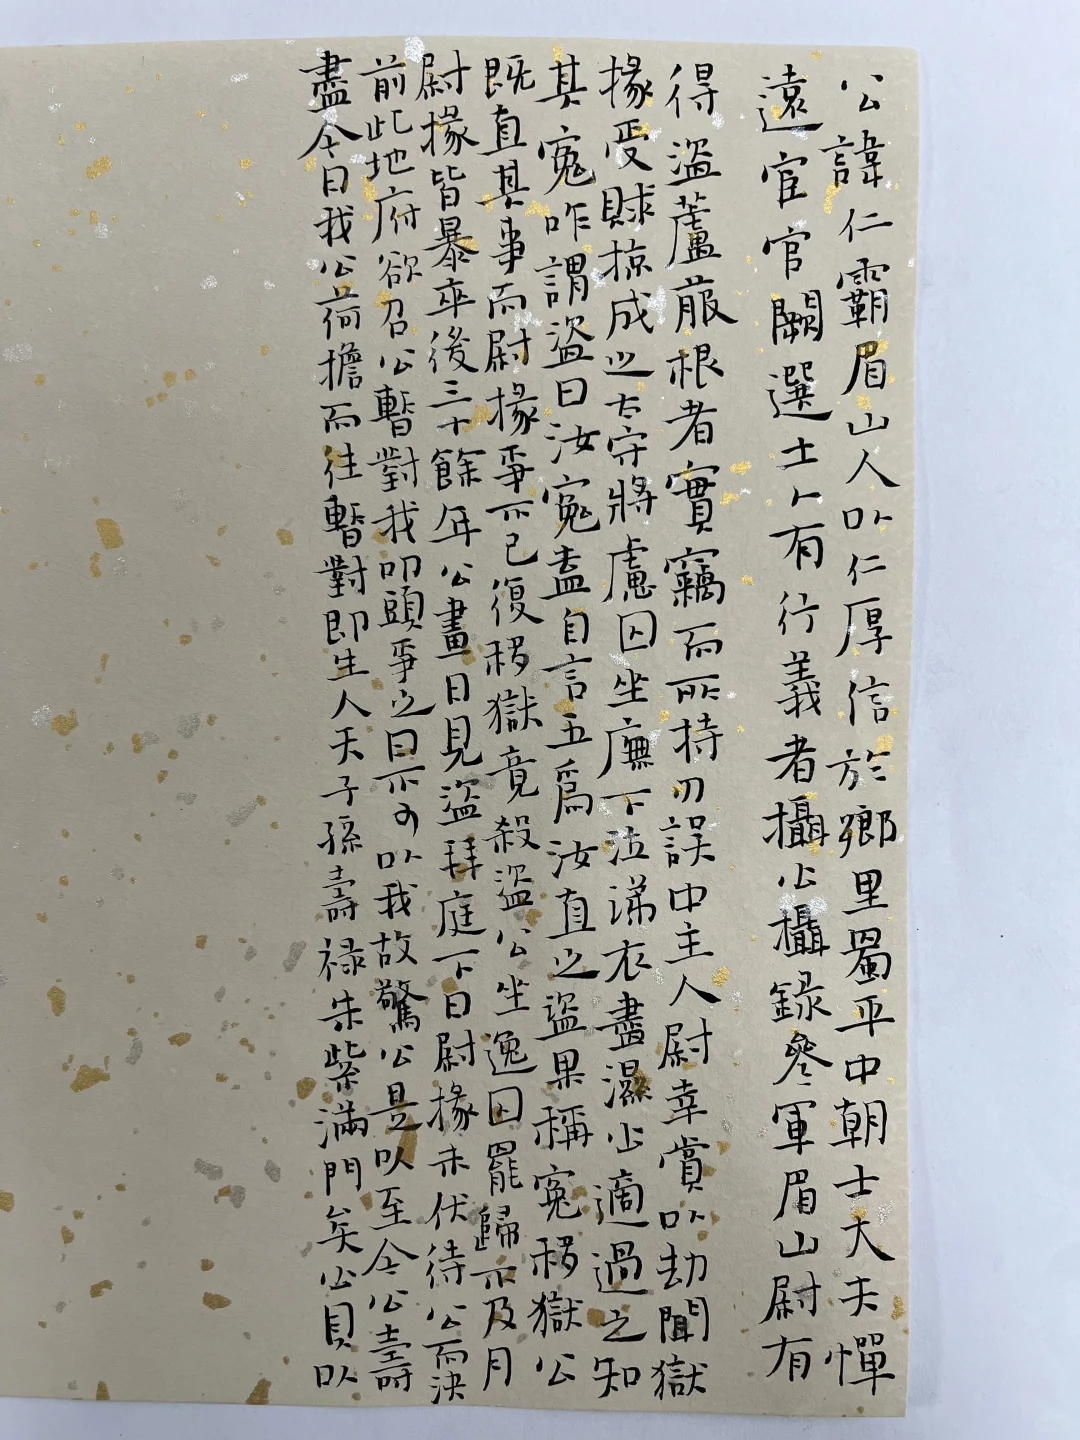 公諱仁霸眉山人以仁厚信於鄉里蜀平中朝士大夫憚
遠宦官闕選士人有行義者攝公攝錄參軍眉山尉有
得盜蘆菔根者實竊而所持刃誤中主人尉幸賞以劫聞獄
掾受賕掠成之太守將慮囚坐廡下泣涕衣盡濕公適過之知
其冤咋謂盜曰汝冤盍自言吾為汝直之盜果稱冤移獄公
既直其事而尉掾爭不已復移獄竟殺盜公坐逸囚罷歸不及月
尉掾皆暴卒後三十餘年公晝日見盜拜庭下曰尉掾未伏待公而決
前此地府欲召公暫對我叩頭爭之曰不可以我故驚公是以至今公壽
盡今日我公荷擔而往暫對即生人天子孫壽祿朱紫滿門矣公具以